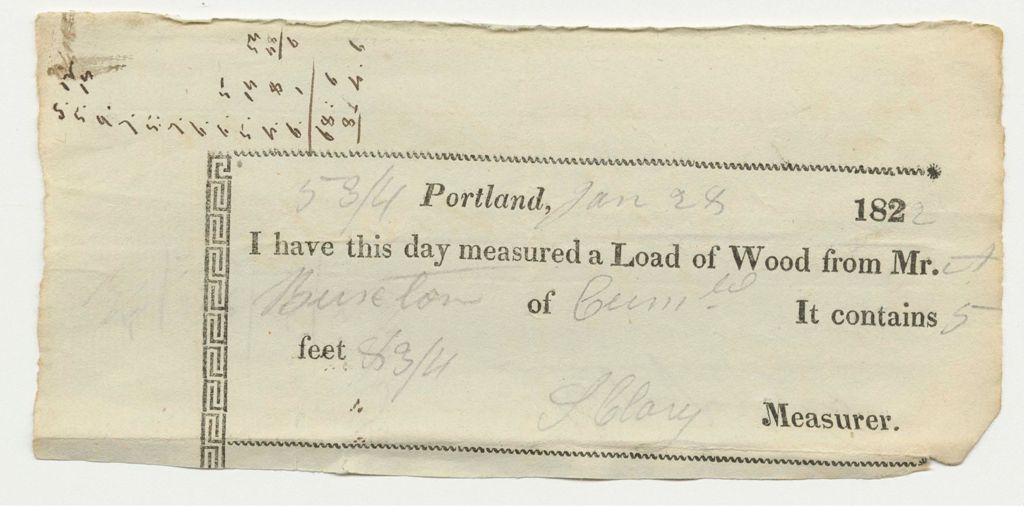 5 3/4 Portland, Jan 28 1822
I have this day measured a Load of Wood from Mr. A
Buxton of Cumld It contains 5
feet 8 3/4
S Clary Measurer.